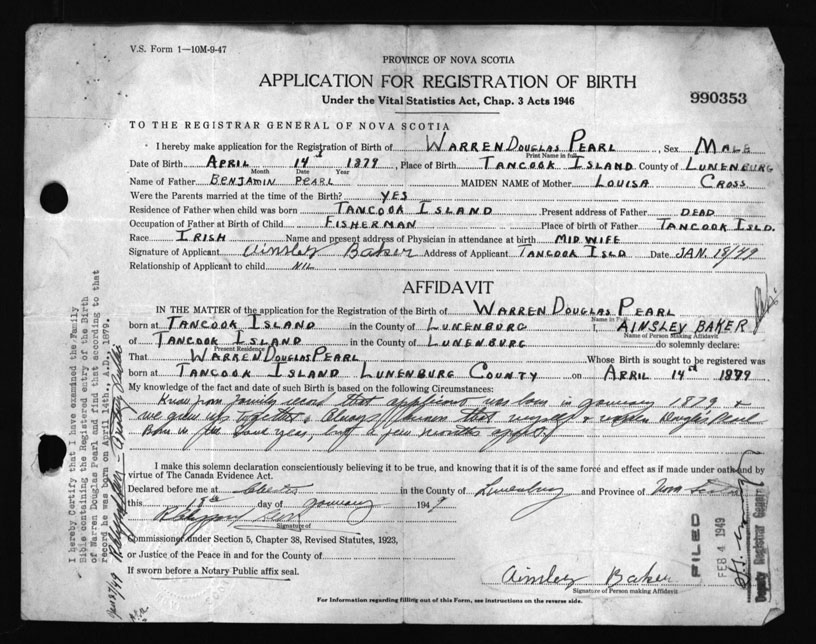 V.S. Form 1—10M-9-47
PROVINCE OF NOVA SCOTIA
APPLICATION FOR REGISTRATION OF BIRTH
Under the Vital Statistics Act, Chap. 3 Acts 1946
990353
TO THE REGISTRAR GENERAL OF NOVA SCOTIA
I hereby make application for the Registration of Birth of WARREN DOUGLAS PEARL, Sex MALE
Print Name in full
Date of Birth APRIL 14th 1879, Place of Birth TANCOOK ISLAND County of LUNENBURG
Month Date Year
Name of Father BENJAMIN PEARL MAIDEN NAME of Mother LOUISA CROSS
Were the Parents married at the time of the Birth? YES
Residence of Father when child was born TANCOOK ISLAND Present address of Father DEAD
Occupation of Father at Birth of Child FISHERMAN Place of birth of Father TANCOOK ISLD.
Race IRISH Name and present address of Physician in attendance at birth MIDWIFE
Signature of Applicant Ainsley Baker Address of Applicant TANCOOK ISLD Date JAN. 18/49
Relationship of Applicant to child NIL
AFFIDAVIT
IN THE MATTER of the application for the Registration of the Birth of WARREN DOUGLAS PEARL
Name in Full
born at TANCOOK ISLAND in the County of LUNENBURG I, AINSLEY BAKER
Name of Person Making Affidavit
of TANCOOK ISLAND in the County of LUNENBURG do solemnly declare:
Present Residence
That WARREN DOUGLAS PEARL Whose Birth is sought to be registered was
born at TANCOOK ISLAND LUNENBURG COUNTY on APRIL 14th 1879
My knowledge of the fact and date of such Birth is based on the following Circumstances:
Know from family record that applicant was born in January 1879 &
we grew up together & always known that myself &
Born in same year, a few months apart
I make this solemn declaration conscientiously believing it to be true, and knowing that it is of the same force and effect as if made under oath and by
virtue of The Canada Evidence Act.
Declared before me at Chester in the County of Lunenburg and Province of Nova Scotia
this 18th day of January 1949
Signature of
Commissioner under Section 5, Chapter 38, Revised Statutes, 1923,
or Justice of the Peace in and for the County of
If sworn before a Notary Public affix seal.
Ainsley Baker
Signature of Person making Affidavit
For Information regarding filling out of this Form, see instructions on the reverse side.
I hereby Certify that I have examined the Family
Bible containing the Registered entry of the Birth
of Warren Douglas Pearl and find that according to that
record he was born on April 14th., A.D., 1879.
FILED
FEB 4 1949
Deputy Registrar General